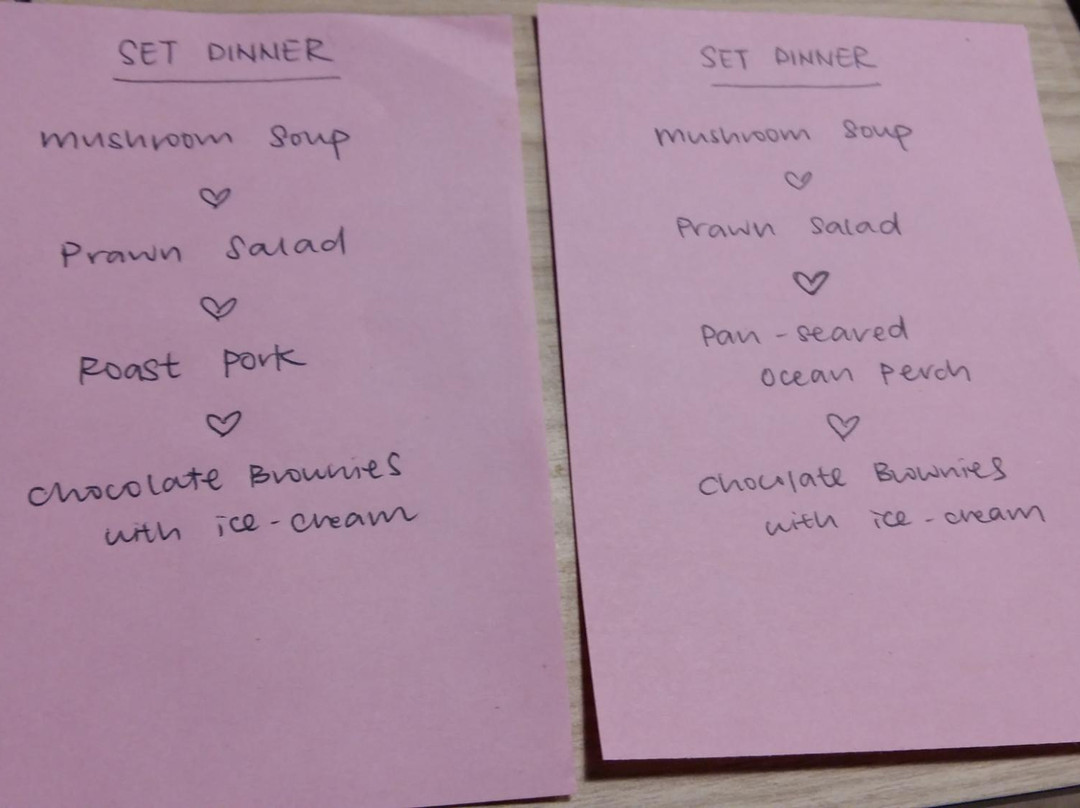 SET DINNER
mushroom soup
♡
Prawn Salad
♡
Roast Pork
♡
Chocolate Brownies
with ice-cream
SET DINNER
mushroom soup
♡
Prawn Salad
♡
Pan-seared
ocean Perch
♡
Chocolate Brownies
with ice-cream